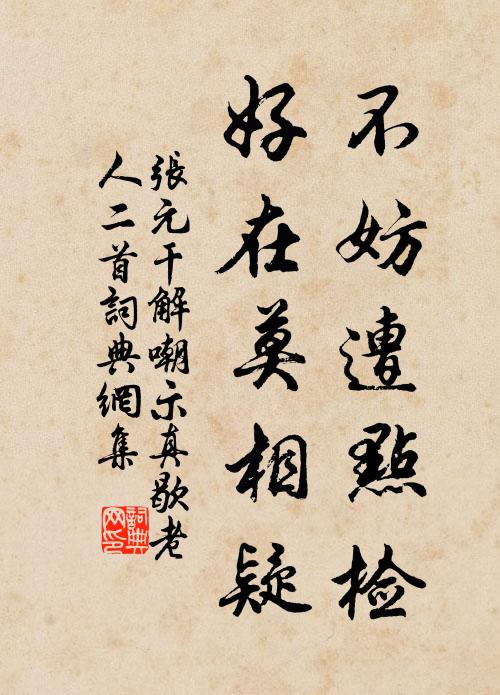 不妨遭點检
好在莫相疑
張元干解嘲示真歇老
人二首詞典網集
詞典
网印